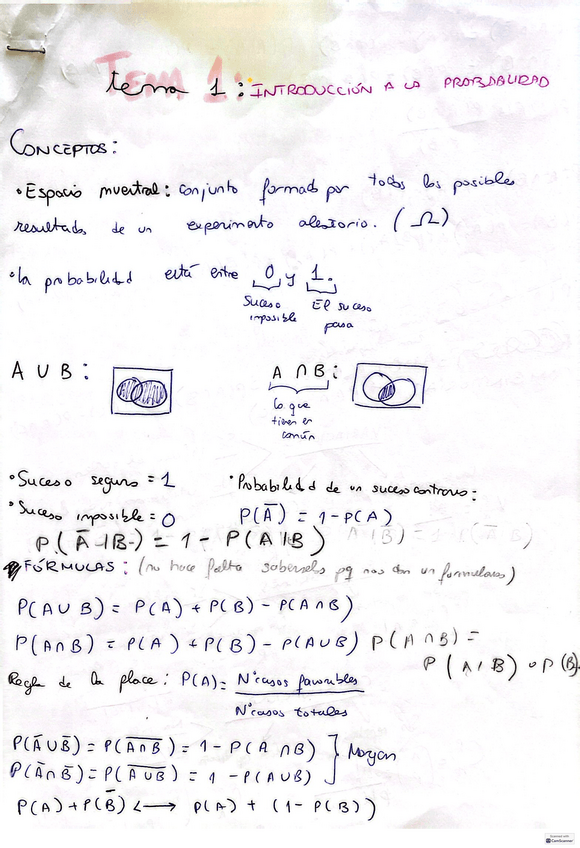 TEMA 1:
tema 1 : INTRODUCCIÓN A LA PROBABILIDAD
CONCEPTOS:
• Espacio muestral: conjunto formado por todos los posibles
resultados de un experimento aleatorio. (Ω)
• La probabilidad está entre 0 y 1.
Suceso imposible
El suceso pasa
A ∪ B :
A ∩ B :
lo que tienen en común
• Suceso seguro = 1
• Probabilidad de un suceso contrario:
• Suceso imposible = 0
P(Ā) = 1 - P(A)
P(Ā|B) = 1 - P(A|B)
FÓRMULAS: (no hace falta sabérselas pq nos dan un formulario)
P(A∪B) = P(A) + P(B) - P(A∩B)
P(A∩B) = P(A) + P(B) - P(A∪B)
P(A∩B) =
P(A/B) · P(B).
Regla de la place: P(A) = Nºcasos favorables
Nºcasos totales
P(Ā∪B̄) = P(A̅∩̅B̅) = 1 - P(A∩B)
P(Ā∩B̄) = P(A̅∪̅B̅) = 1 - P(A∪B)
} Morgan
P(A) + P(B̄) ⟷ P(A) + (1 - P(B))
Scanned with
CamScanner